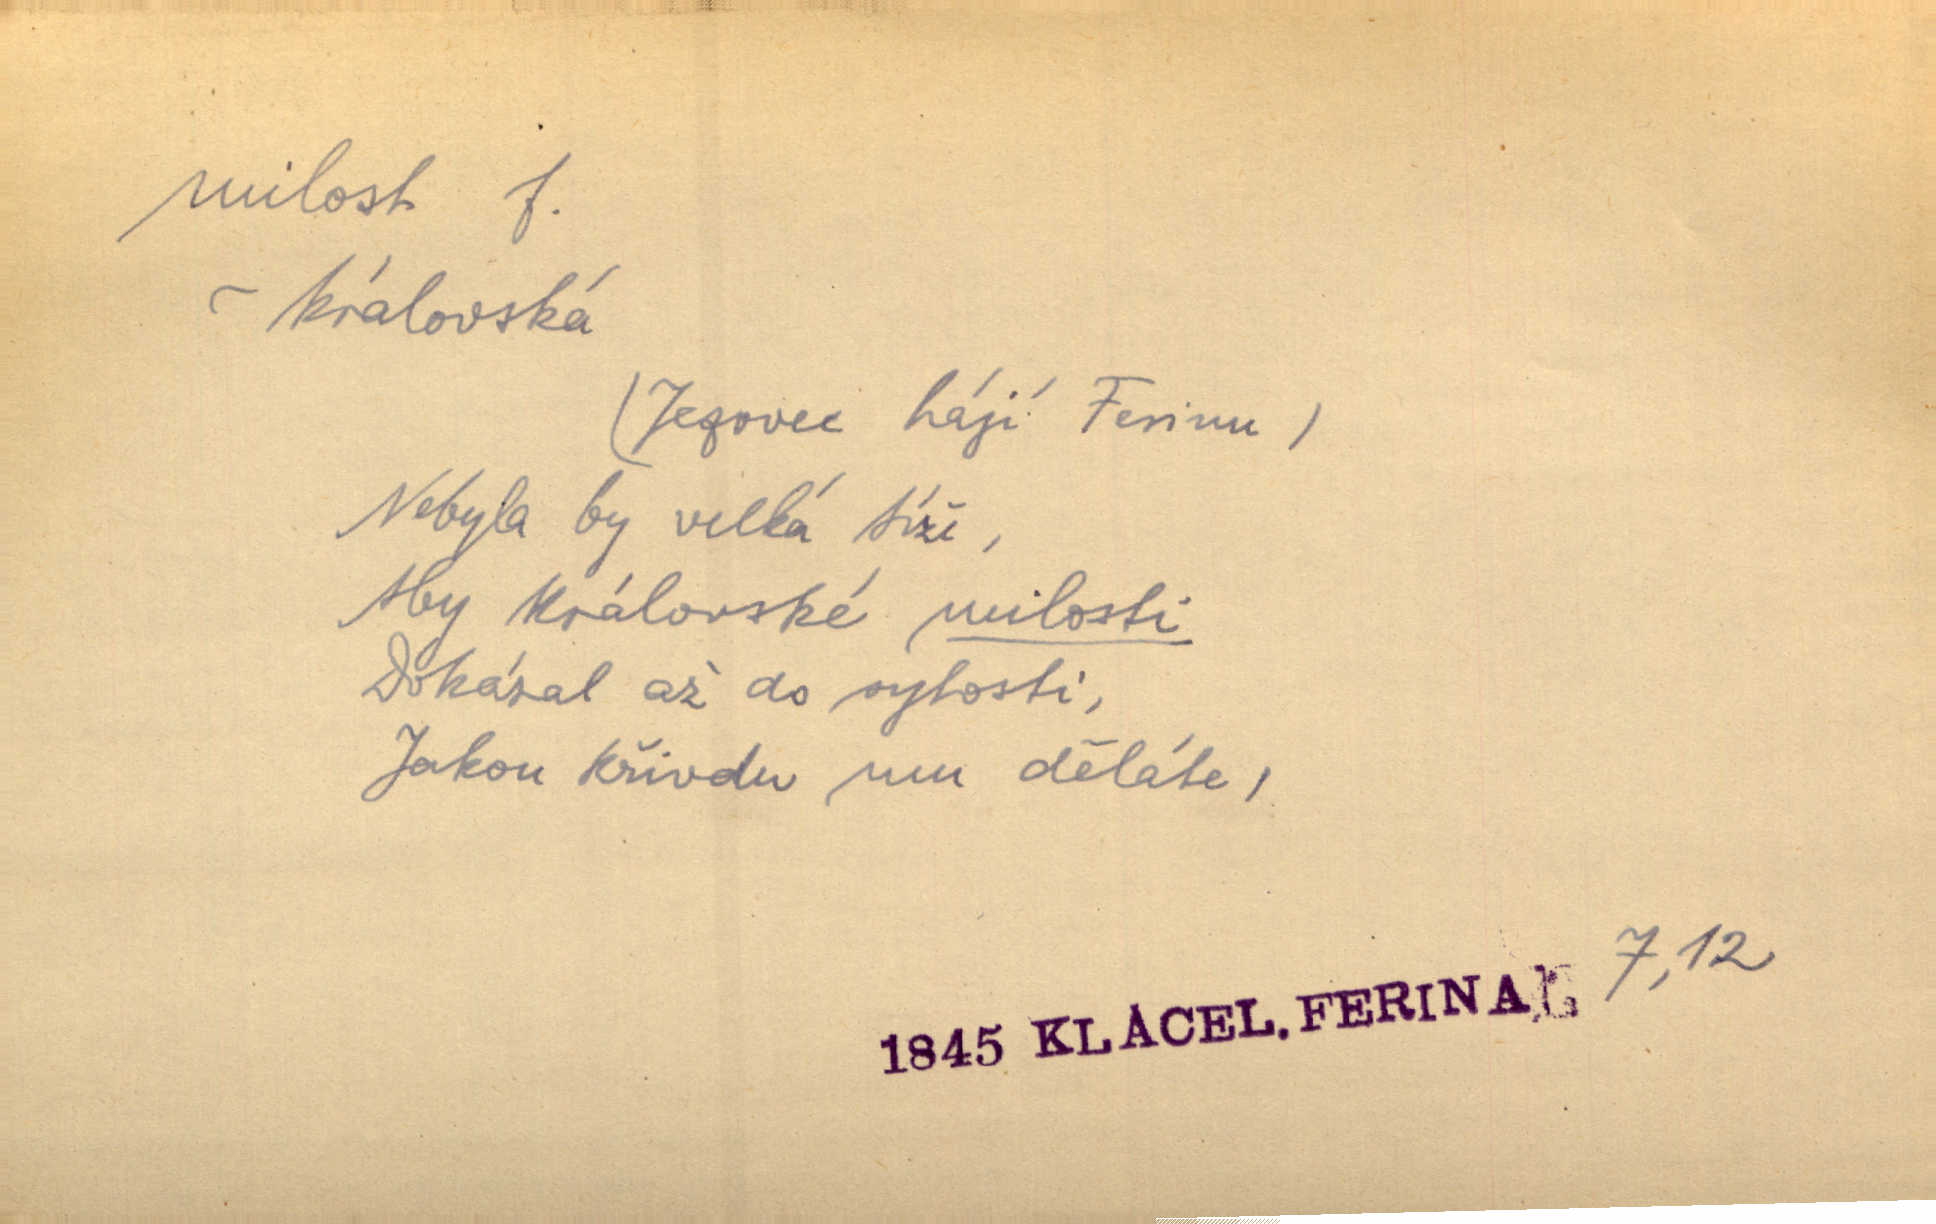 milost f.
- královská
(Jezovec hájí Ferinu)
Nebyla by velká tíži,
Aby královské milosti
Dokázal až do sytosti,
Jakou křivdu mu děláte,
7,12
1845 KLÁCEL. FERINA